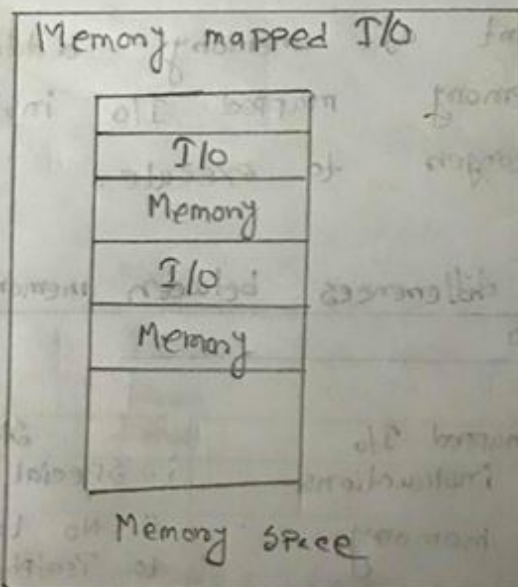 Memory mapped I/O
I/O
Memory
I/O
Memory
Memory space